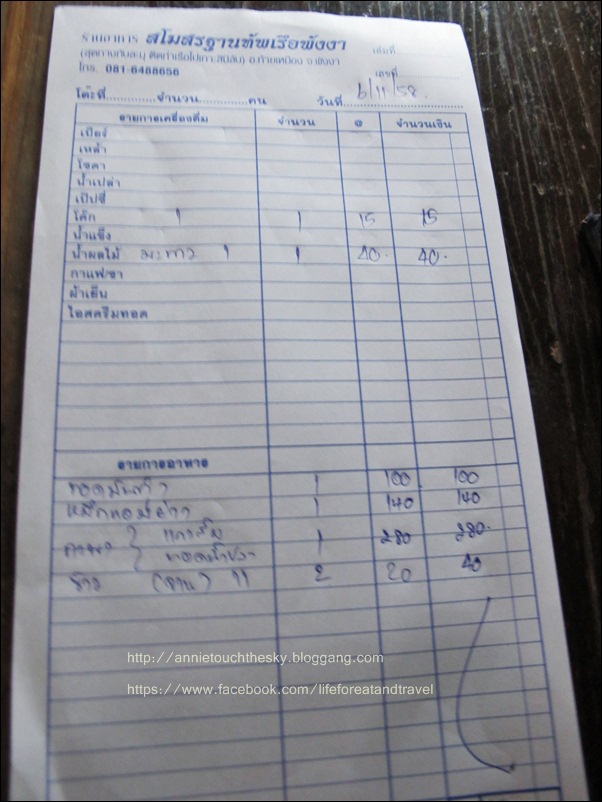 ร้านอาหาร สโมสรฐานทัพเรือพังงา เล่มที่
(สุดทางทับละมุ ติดท่าเรือไปเกาะสิมิลัน) อ.ท้ายเหมือง จ.พังงา
โทร. 081-6488656 เลขที่
โต๊ะที่..............จำนวน.............คน วันที่ 6/11/58
รายการเครื่องดื่ม จำนวน @ จำนวนเงิน
เบียร์
เหล้า
โซดา
น้ำเปล่า
เป๊ปซี่
โค้ก 1 1 15 15
น้ำแข็ง
น้ำผลไม้ มะพร้าว 1 1 40. 40.
กาแฟ/ชา
ผ้าเย็น
ไอศครีมทอด
รายการอาหาร
1 100 100
1 140 140
แกงส้ม
ทอดน้ำปลา 1 280 280.
ข้าว (จาน) 11 2 20 40
http://annietouchthesky.bloggang.com
https://www.facebook.com/lifeforeatandtravel